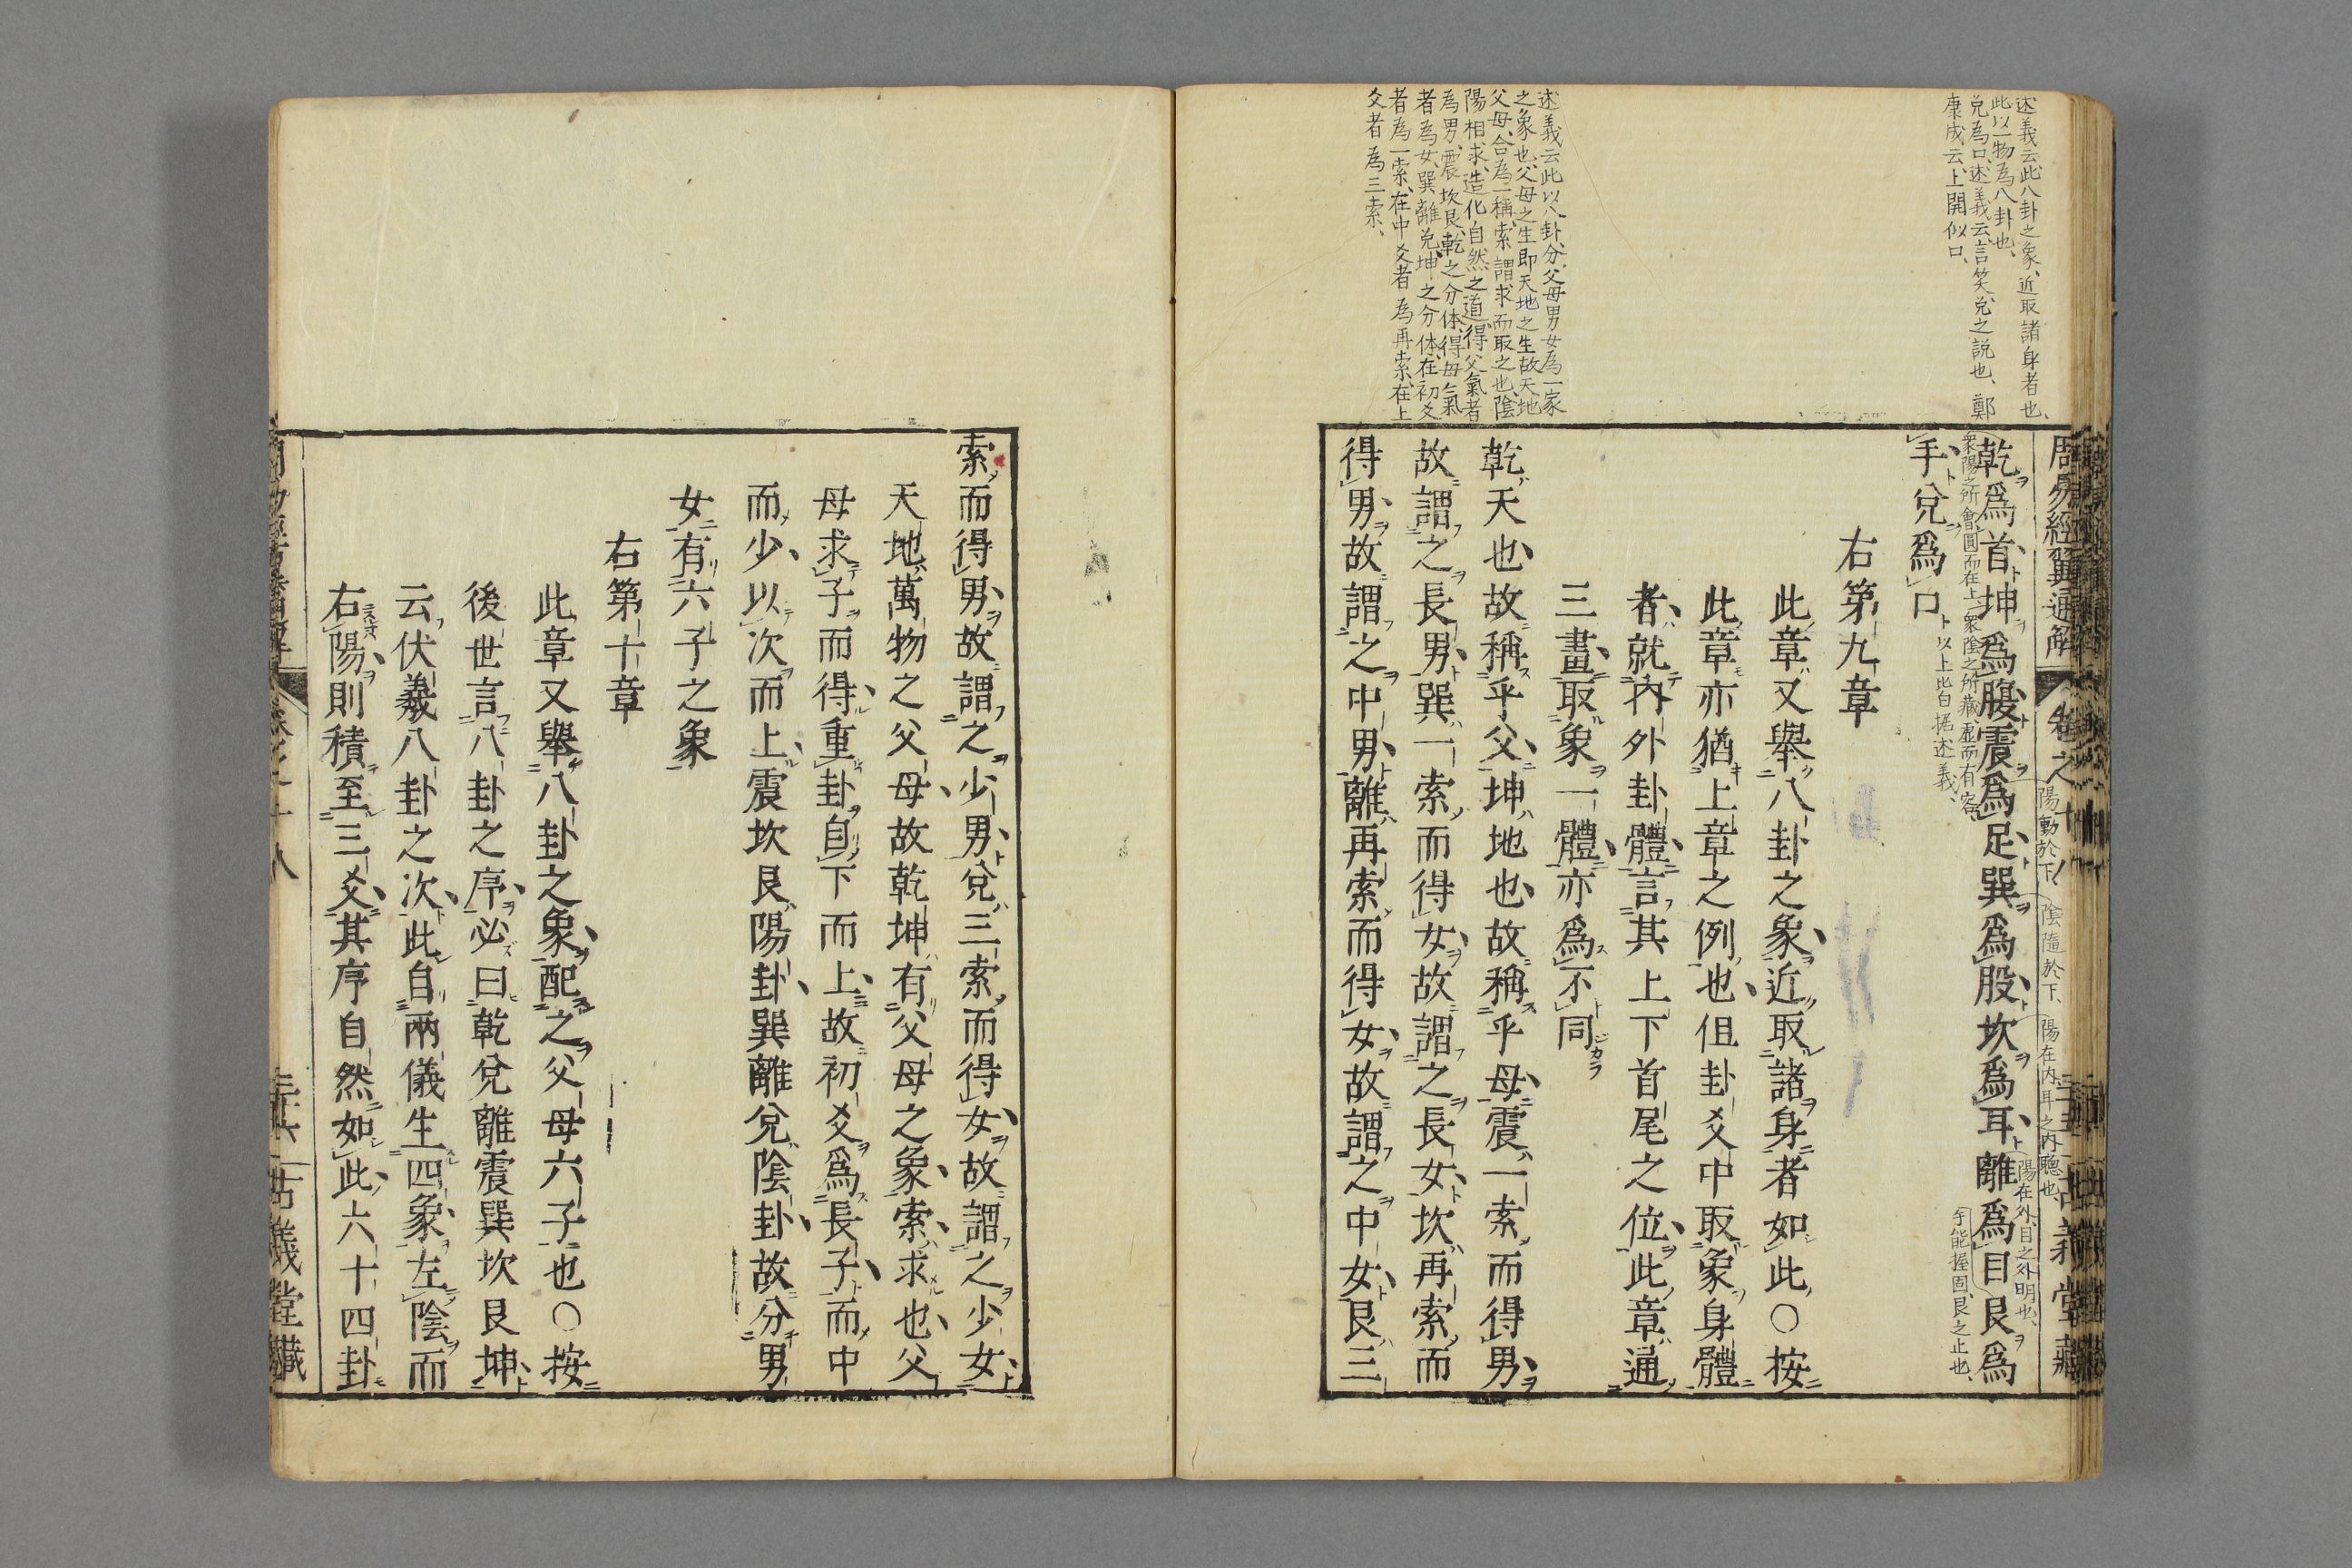 述義云此八卦之象、近取諸身者也、
此以一物為八卦也、
兌為口、述義云、言笑兌之説也、鄭
康成云、上開似口、
述義云此以八卦、分父母男女為一家
之象也、父母之生即天地之生故天地
父母、合為一稱、索謂求而取之也、陰
陽相求、造化自然之道、得父氣者
為男、震坎艮、乾之分体、得母氣
者為女、巽離兌、坤之分体、在初爻
者為一索、在中爻者為再索、在上
爻者為三索、
周易經翼通解 卷之十八 古義堂藏
陽動於下、
陰隨於下、
陽在内、耳之内聰也、
陽在外、目之外明也、
乾爲首坤爲腹震爲足巽爲股坎爲耳離爲目艮爲
衆陽之所會圓而在上
衆陰之所藏虛而有容
手能握固、艮之止也、
手兌爲口
以上比白據述義、
右第九章
此章又舉八卦之象近取諸身者如此○按
此章亦猶上章之例也但卦爻中取象身體
者就内外卦體言其上下首尾之位此章通
三畫取象一體亦爲不同
乾天也故稱乎父坤地也故稱乎母震一索而得男
故謂之長男巽一索而得女故謂之長女坎再索而
得男故謂之中男離再索而得女故謂之中女艮三
索而得男故謂之少男兌三索而得女故謂之少女
天地萬物之父母故乾坤有父母之象索求也父
母求子而得重卦自下而上故初爻爲長子而中
而少以次而上震坎艮陽卦巽離兌陰卦故分男
女有六子之象
右第十章
此章又舉八卦之象配之父母六子也○按
後世言八卦之序必曰乾兌離震巽坎艮坤
云伏羲八卦之次此自兩儀生四象左陰而
右陽則積至三爻其序自然如此六十四卦
卷之十八 古義堂藏